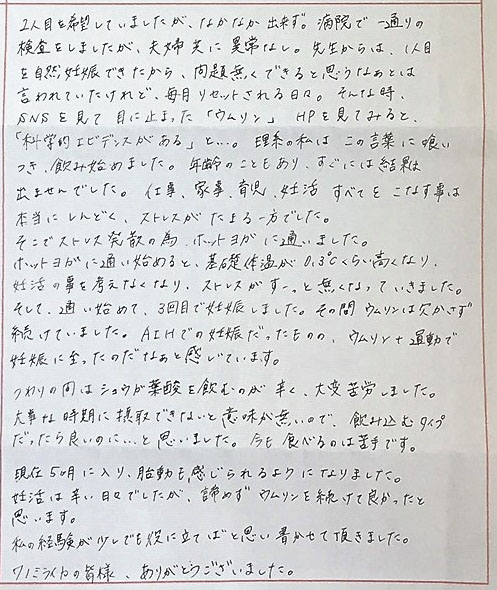 2人目を希望していましたが、なかなか出来ず。病院で一通りの
検査をしましたが、夫婦共に異常なし。先生からは、1人目
を自然妊娠できたから、問題無くできると思うなぁとは
言われていたけれど、毎月リセットされる日々。そんな時、
SNSを見て目に止まった「ウムリン」HPを見てみると、
「科学的エビデンスがある」と…。理系の私はこの言葉に喰い
つき、飲み始めました。年齢のこともあり、すぐには結果は
出ませんでした。仕事、家事、育児、妊活すべてをこなす事は
本当にしんどく、ストレスがたまる一方でした。
そこでストレス発散の為、ホットヨガに通いました。
ホットヨガに通い始めると、基礎体温が0.3℃くらい高くなり、
妊活の事を考えなくなり、ストレスがすーっと無くなっていきました。
そして、通い始めて、3回目で妊娠しました。その間ウムリンは欠かさず
続けていました。AIHでの妊娠だったものの、ウムリン+運動で
妊娠に至ったのだなぁと感じています。
つわりの間はショウガ葉酸を飲むのが辛く、大変苦労しました。
大事な時期に摂取できないと意味が無いので、飲み込むタイプ
だったら良いのに…と思いました。今も食べるのは苦手です。
現在5ヶ月に入り、胎動も感じられるようになりました。
妊活は辛い日々でしたが、諦めずウムリンを続けて良かったと
思います。
私の経験が少しでも役に立てばと思い書かせて頂きました。
の皆様、ありがとうございました。